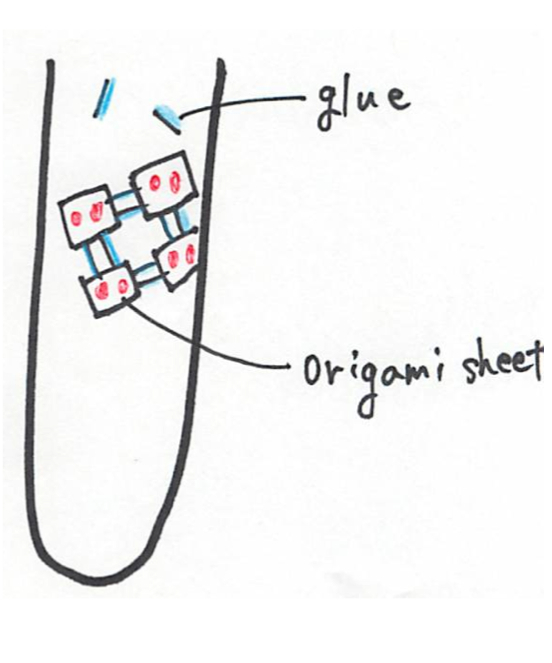 glue
Origami sheet